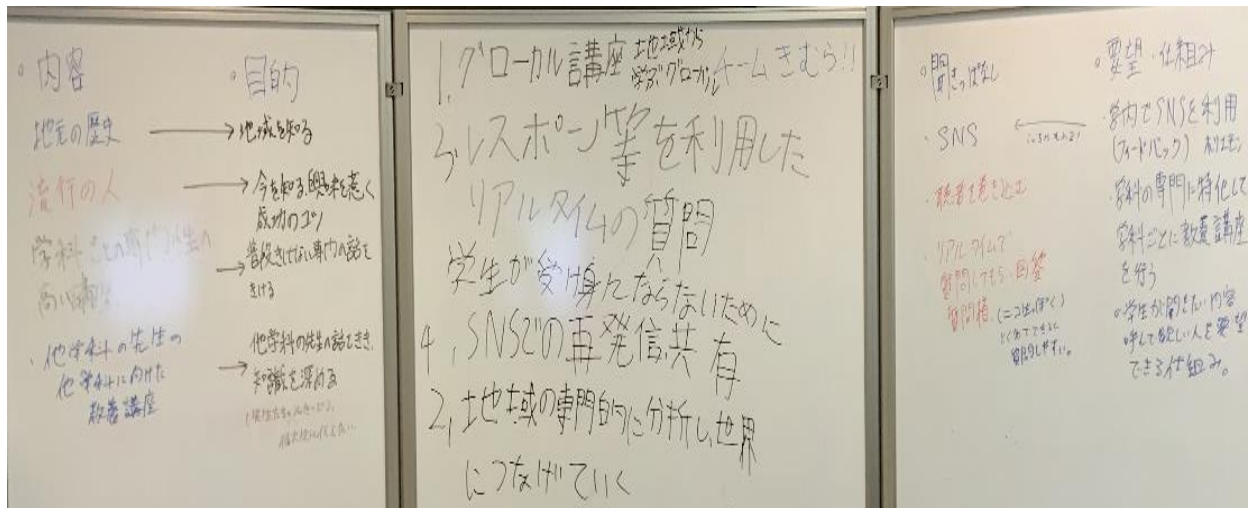 。内容
地元の歴史
流行の人
学科ごとの専門
高い
・他学科の先生の
他学科に向けた
教養講座
。目的
→地域を知る
→今を知る、興味を惹く
成功のコツ
→普段きけない専門の話を
きける
→他学科の先生の話をきき、
知識を深める
1.グローカル講座 地域から
学ぶグローカル チームきむら!!
3.レスポン等を利用した
リアルタイムの質問
学生が受け身にならないために
4.SNSでの再発信、共有
2.地域の専門的に分析し、世界
につなげていく
。聞きっぱなし
・SNS ←
・聴者を巻き込む
・リアルタイムで
質問してもらい回答
質問箱 (ニコ生っぽく)
とくめいでできると
質問しやすい。
。要望・仕組み
・学内でSNSを利用
(フィードバック) ホリエモン
・学科の専門に特化して
学科ごとに教養講座
を行う
。学生が聞きたい内容
呼んで欲しい人を要望
できる仕組み。